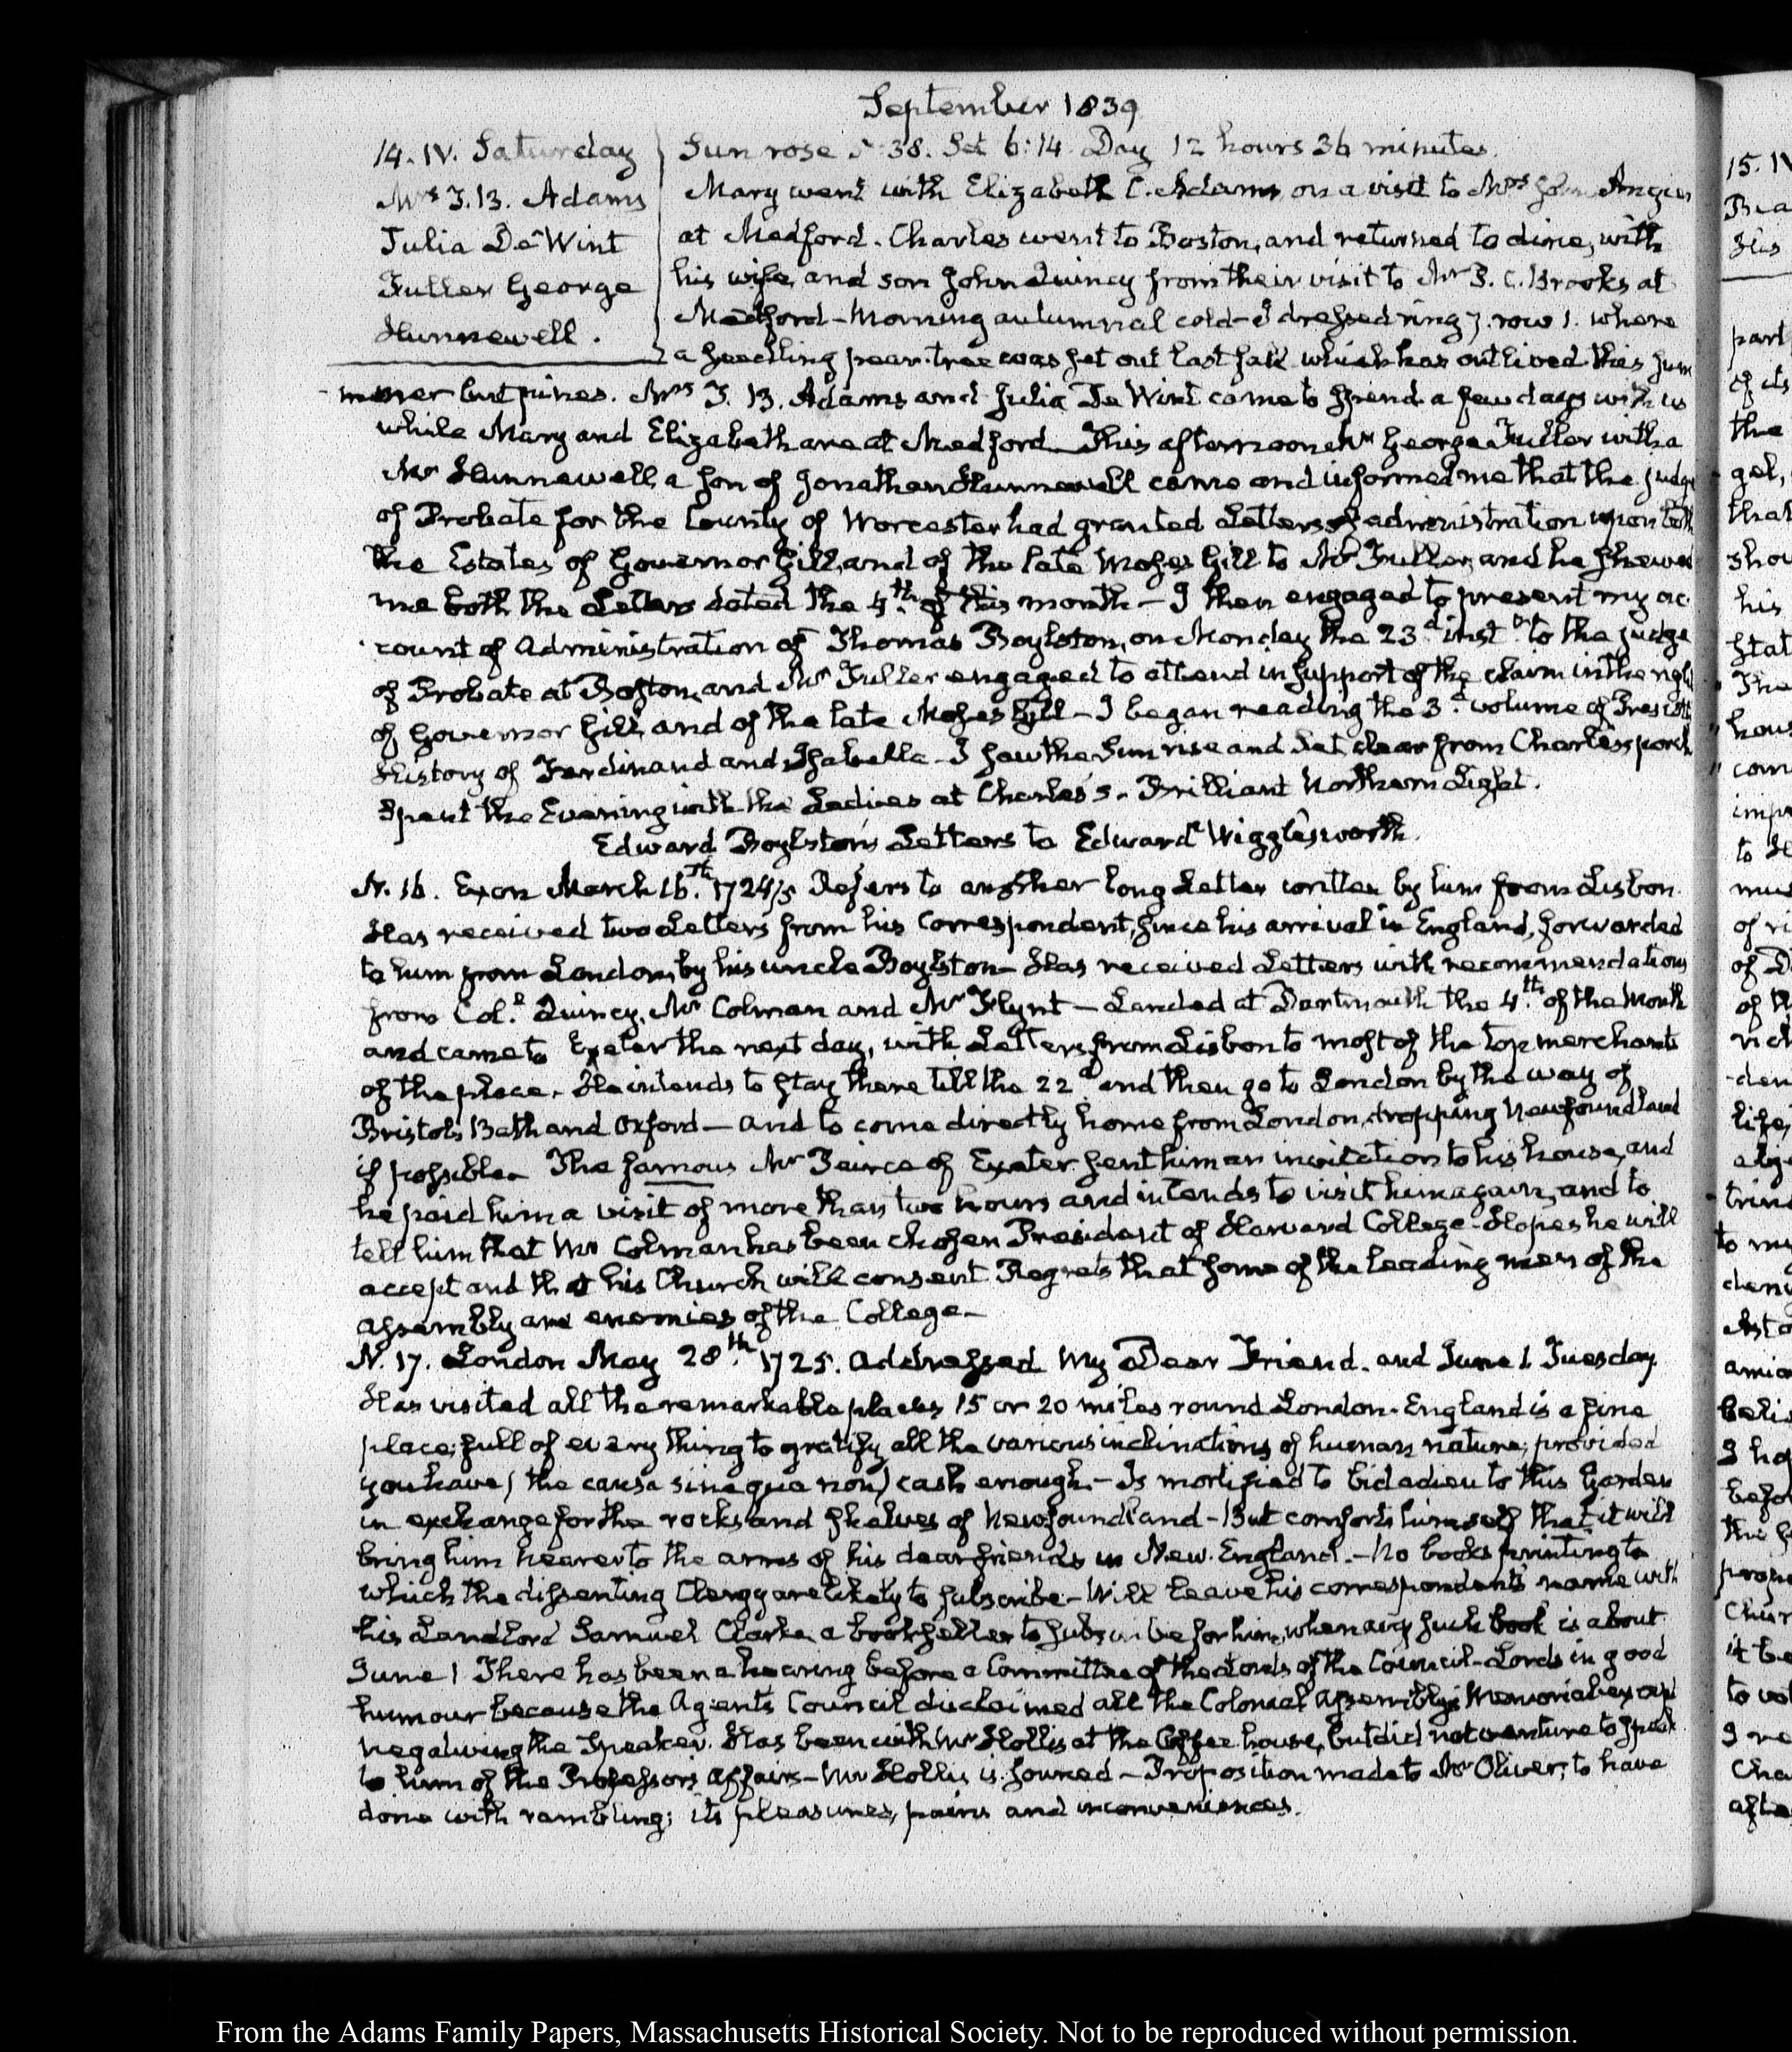 September 1839
14. IV. Saturday
Mrs T. B. Adams
Julia De Wint
Fuller George
Hunnewell.
Sun rose 5:38. Set 6:14. Day 12 hours 36 minutes.
Mary went with Elizabeth C. Adams, on a visit to Mrs John Angier
at Medford. Charles went to Boston, and returned to dine, with
his wife, and son John Quincy from their visit to Mr P. C. Brooks at
Medford — Morning autumnal cold — I dressed ring 7. row 1. where
a seedling pear-tree was set out last fall which has outlived this sum
mer but pines. Mrs T. B. Adams and Julia De Wint came to spend a few days with us
while Mary and Elizabeth are at Medford — This afternoon Mr George Fuller with a
Mr Hunnewell, a son of Jonathan Hunnewell came and informed me that the judge
of Probate for the County of Worcester had granted Letters of administration upon both
the Estates of Governor Gill, and of the late Moses Gill to Mr Fuller, and he shewed
me both the Letters dated the 4th. of this month — I then engaged to present my ac
count of Administration of Thomas Boylston, on Monday the 23d inst to the judge
of Probate at Boston, and Mr Fuller engaged to attend in support of the claim in the right
of Governor Gill, and of the late Moses Gill — I began reading the 3d. volume of Prescott
History of Ferdinand and Isabella — I saw the Sun rise and set clear from Charles's porch
Spent the Evening with the Ladies at Charles's. Brilliant Northern Light.
Edward Boylston's Letters to Edward Wigglesworth.
N. 16. Exon March 16.th 1724/5 Refers to another long Letter written by him from Lisbon.
Has received two Letters from his Correspondent, since his arrival in England, forwarded
to him from London, by his uncle Boylston — Has received Letters with recommendations
from Col.l Quincy, Mr Colman and Mr Flynt — Landed at Dartmouth the 4.th of the Month
and came to Exeter the next day, with Letters from Lisbon to most of the top merchants
of the place. He intends to stay there till the 22d and then go to London by the way of
Bristol, Bath and Oxford — and to come directly home from London, dropping Newfoundland
if possible. The famous Mr Peirce of Exeter sent him an invitation to his house, and
he paid him a visit of more than two hours and intends to visit him again, and to
tell him that Mr Colman has been chosen President of Harvard College. Hopes he will
accept and that his Church will consent Regrets that some of the leading men of the
assembly are enemies of the College —
N. 17. London May 28.th 1725. addressed My Dear Friend. and June 1. Tuesday.
Has visited all the remarkable places 15 or 20 miles round London. England is a fine
place; full of every thing to gratify all the various inclinations of human nature; provided
you have (the causa sine qua non) cash enough. — Is mortified to bid adieu to this Garden
in exchange for the rocks and shelves of Newfoundland — But comforts himself that it will
bring him nearer to the arms of his dear friends in New-England. — No books printing to
which the dissenting Clergy are likely to subscribe — Will leave his correspondent's name with
his Landlord Samuel Clarke, a bookseller to subscribe for him, when any such book is about
June 1 There has been a hearing before a Committee of the Lords of the Council — Lords in good
humour because the Agents Council disclaimed all the Colonial Assembly's Memorial
negativing the Speaker. Has been with Mr Hollis at the Coffee house, but did not venture to speak
to him of the Professors affairs — Mr Hollis is soured — Proposition made to Mr Oliver; to have
done with rambling; its pleasures, pains and inconveniences.
From the Adams Family Papers, Massachusetts Historical Society. Not to be reproduced without permission.